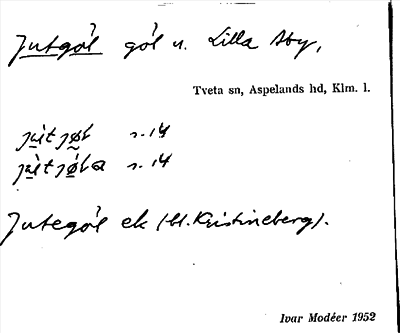 Jutgöl göl n. Lilla Aby,
Tveta sn, Aspelands hd, Klm. l.
r. 14
r. 14
Jutegöl ek (bl. Kristineberg).
Ivar Modéer 1952